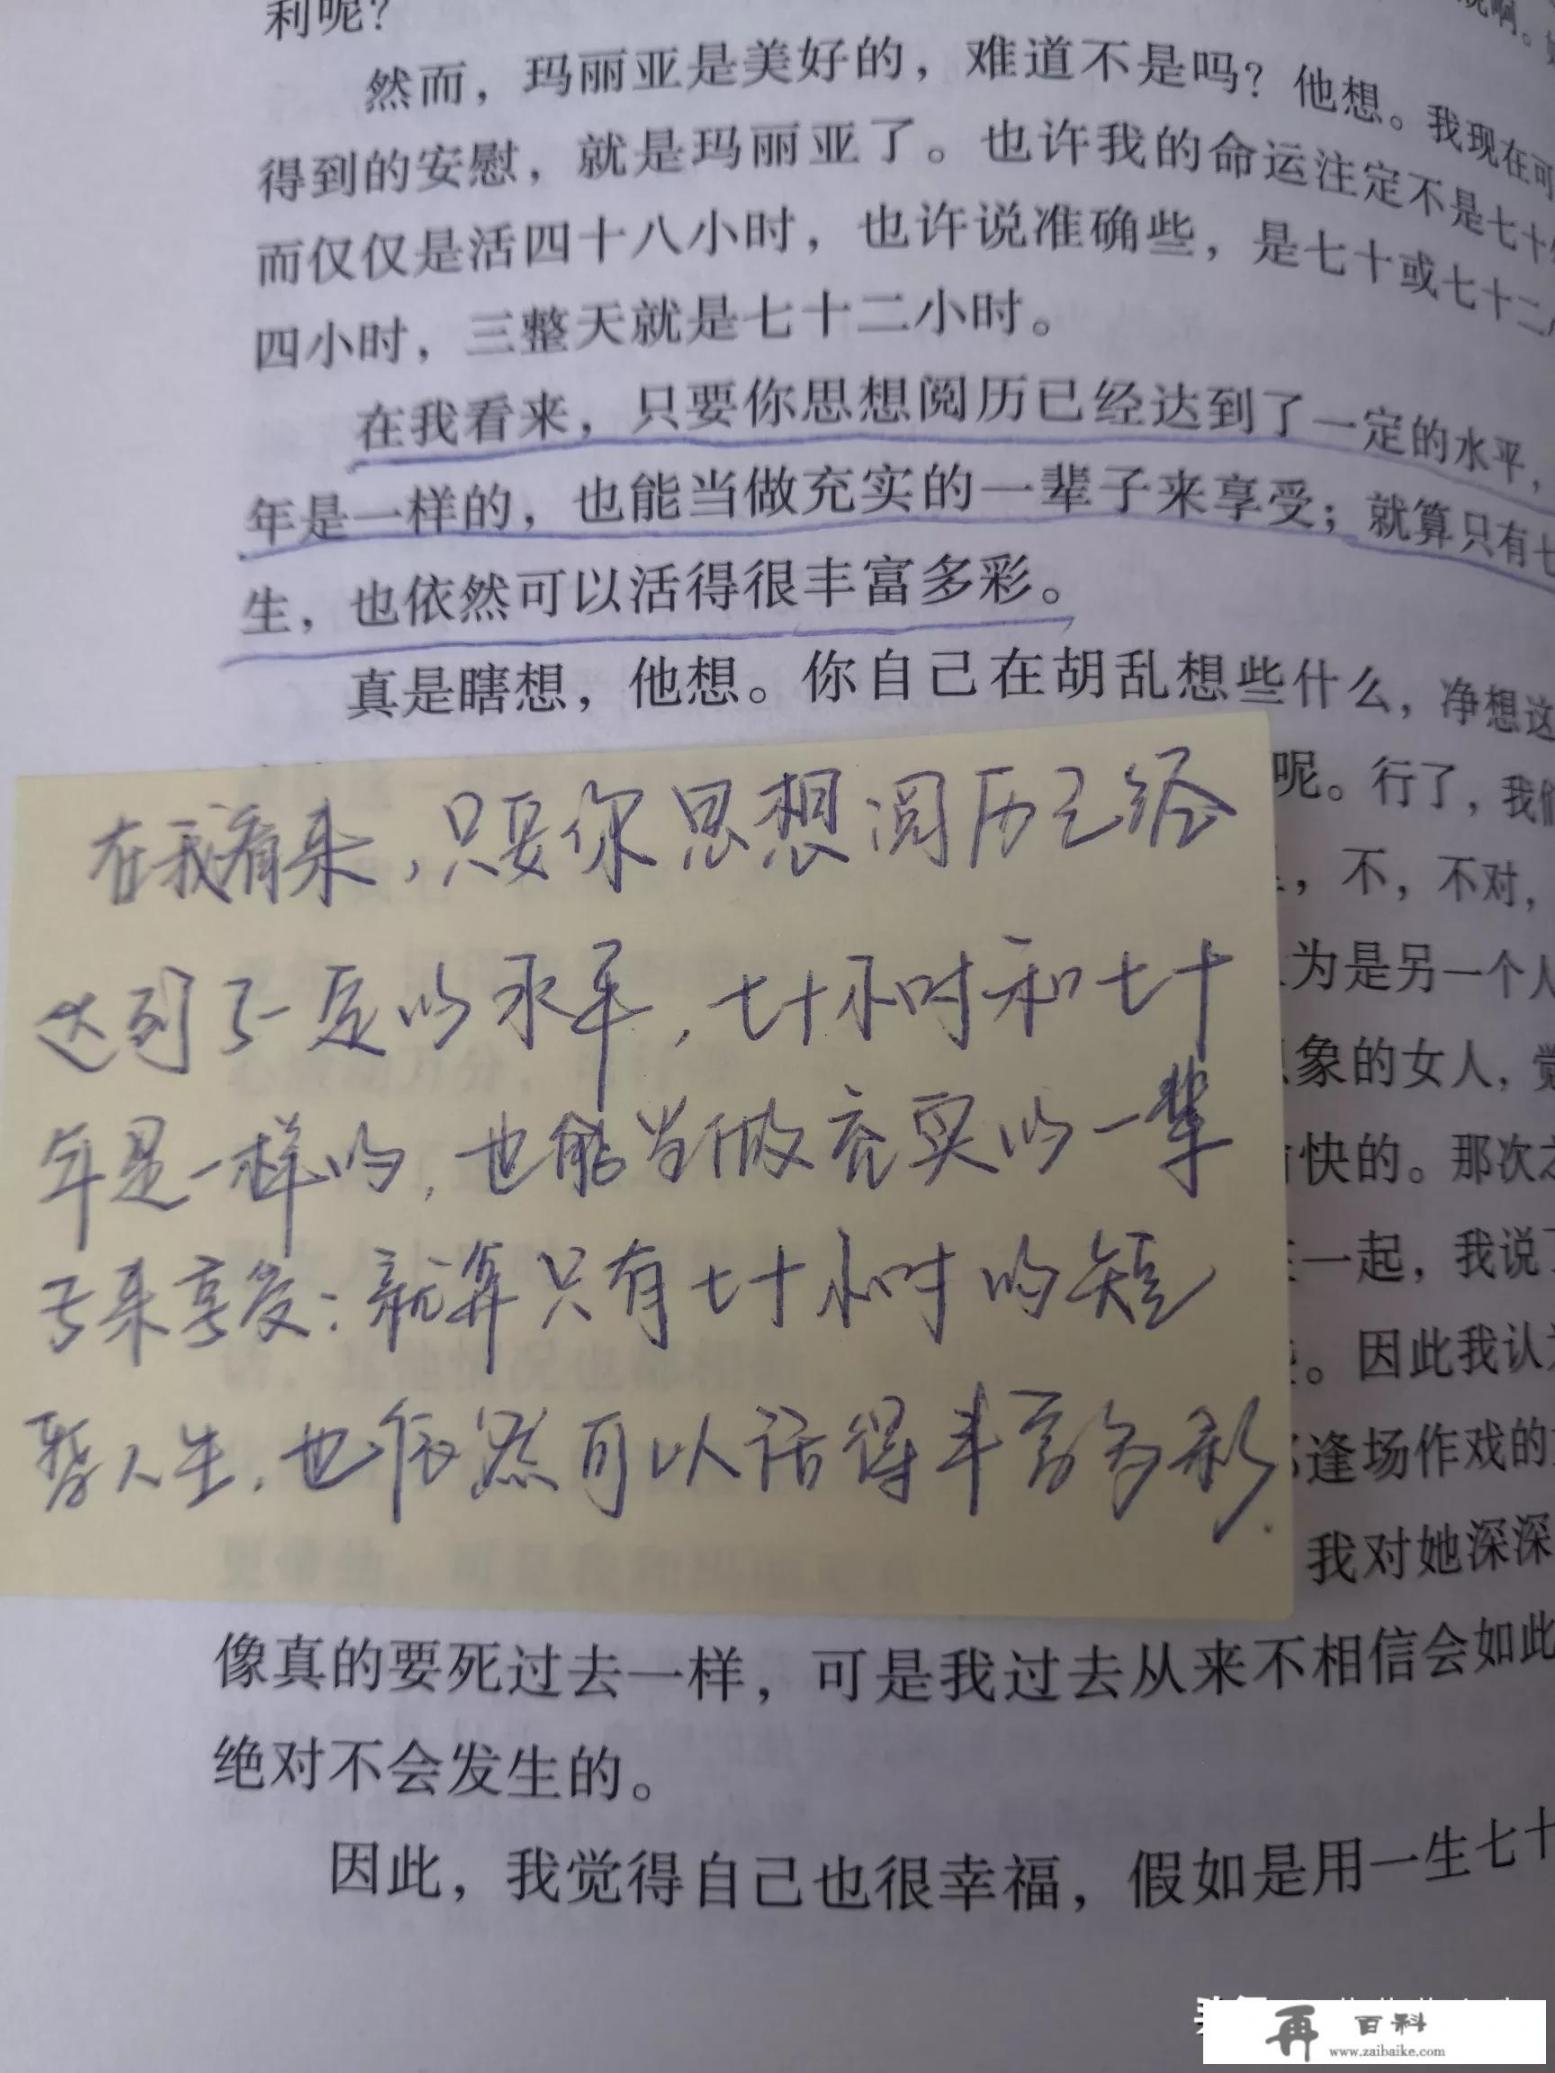 利呢？
然而，玛丽亚是美好的，难道不是吗？他想。我现在可
得到的安慰，就是玛丽亚了。也许我的命运注定不是七十
而仅仅是活四十八小时，也许说准确些，是七十或七十二
四小时，三整天就是七十二小时。
在我看来，只要你思想阅历已经达到了一定的水平，
年是一样的，也能当做充实的一辈子来享受；就算只有七
生，也依然可以活得很丰富多彩。
真是瞎想，他想。你自己在胡乱想些什么，净想这
呢。行了，我们
在我看来，只要你思想阅历已经
达到了一定的水平，七十小时和七十
年是一样的，也能当做充实的一辈
子来享受：就算只有七十小时的短
暂人生，也依然可以活得丰富多彩.
，不，不对，
为是另一个人
象的女人，觉
快的。那次
一起，我说了
。因此我认为
逢场作戏的
我对她深深
像真的要死过去一样，可是我过去从来不相信会如此
绝对不会发生的。
因此，我觉得自己也很幸福，假如是用一生七十
再 百科
www.zaibaike.com